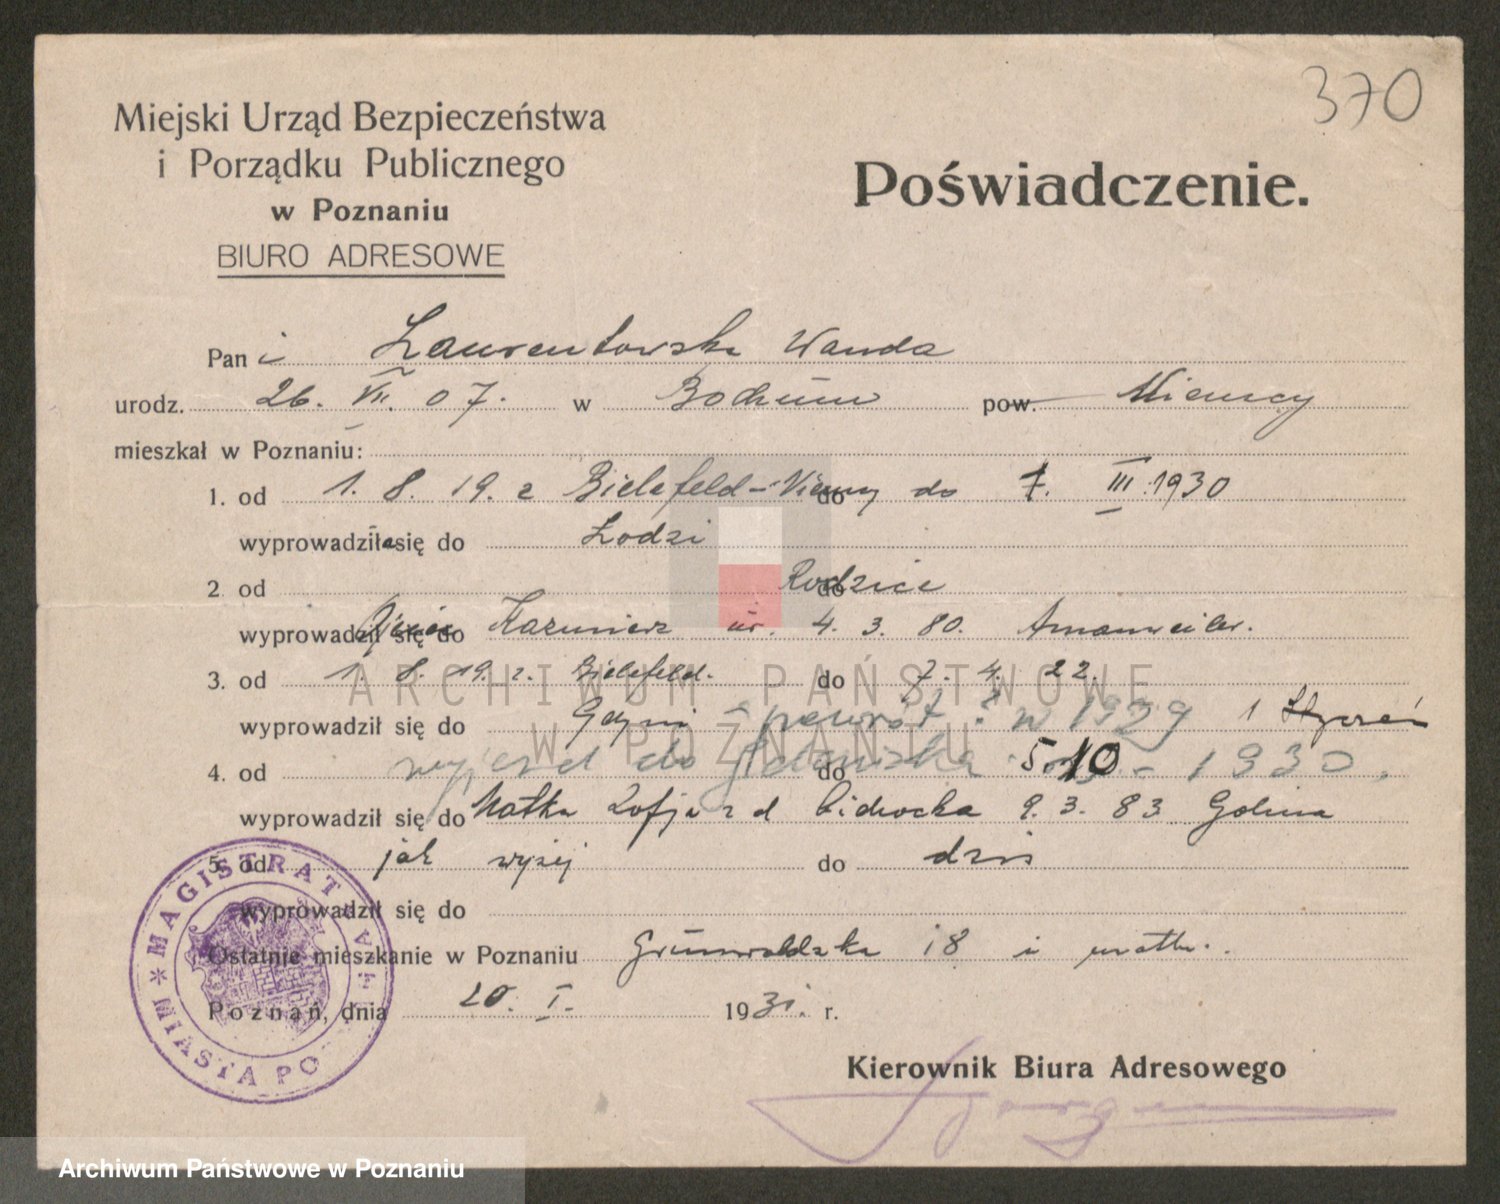 370
Miejski Urząd Bezpieczeństwa
i Porządku Publicznego
w Poznaniu
BIURO ADRESOWE
Poświadczenie.
Pan i Laurentowska Wanda
urodz. 26. VII. 07. w Bochum pow. Niemcy
mieszkał w Poznaniu:
1. od 1. 8. 19. z Bielefeld - Niemcy do do 7. III. 1930
wyprowadziła się do Łodzi
2. od Rodzice do
wyprowadził się do Ojciec Kazimierz ur. 4. 3. 80. Amanweiler.
3. od 1. 8. 19. z. Bielefeld. do 7. 4. 22.
wyprowadził się do Gdyni - powrót w 1929 1 Styczeń
4. od wyjazd do Gdańska do 5 10 - 1930.
wyprowadził się do Matka Zofja z d 9. 3. 83 Golina
5. od jak wyżej do dziś
wyprowadził się do
Ostatnie mieszkanie w Poznaniu Grunwaldzka 18 i
Poznań, dnia 20. I. 1931. r.
Kierownik Biura Adresowego
MAGISTRAT
MIASTA PO
ARCHIWUM PAŃSTWOWE
W POZNANIU
Archiwum Państwowe w Poznaniu